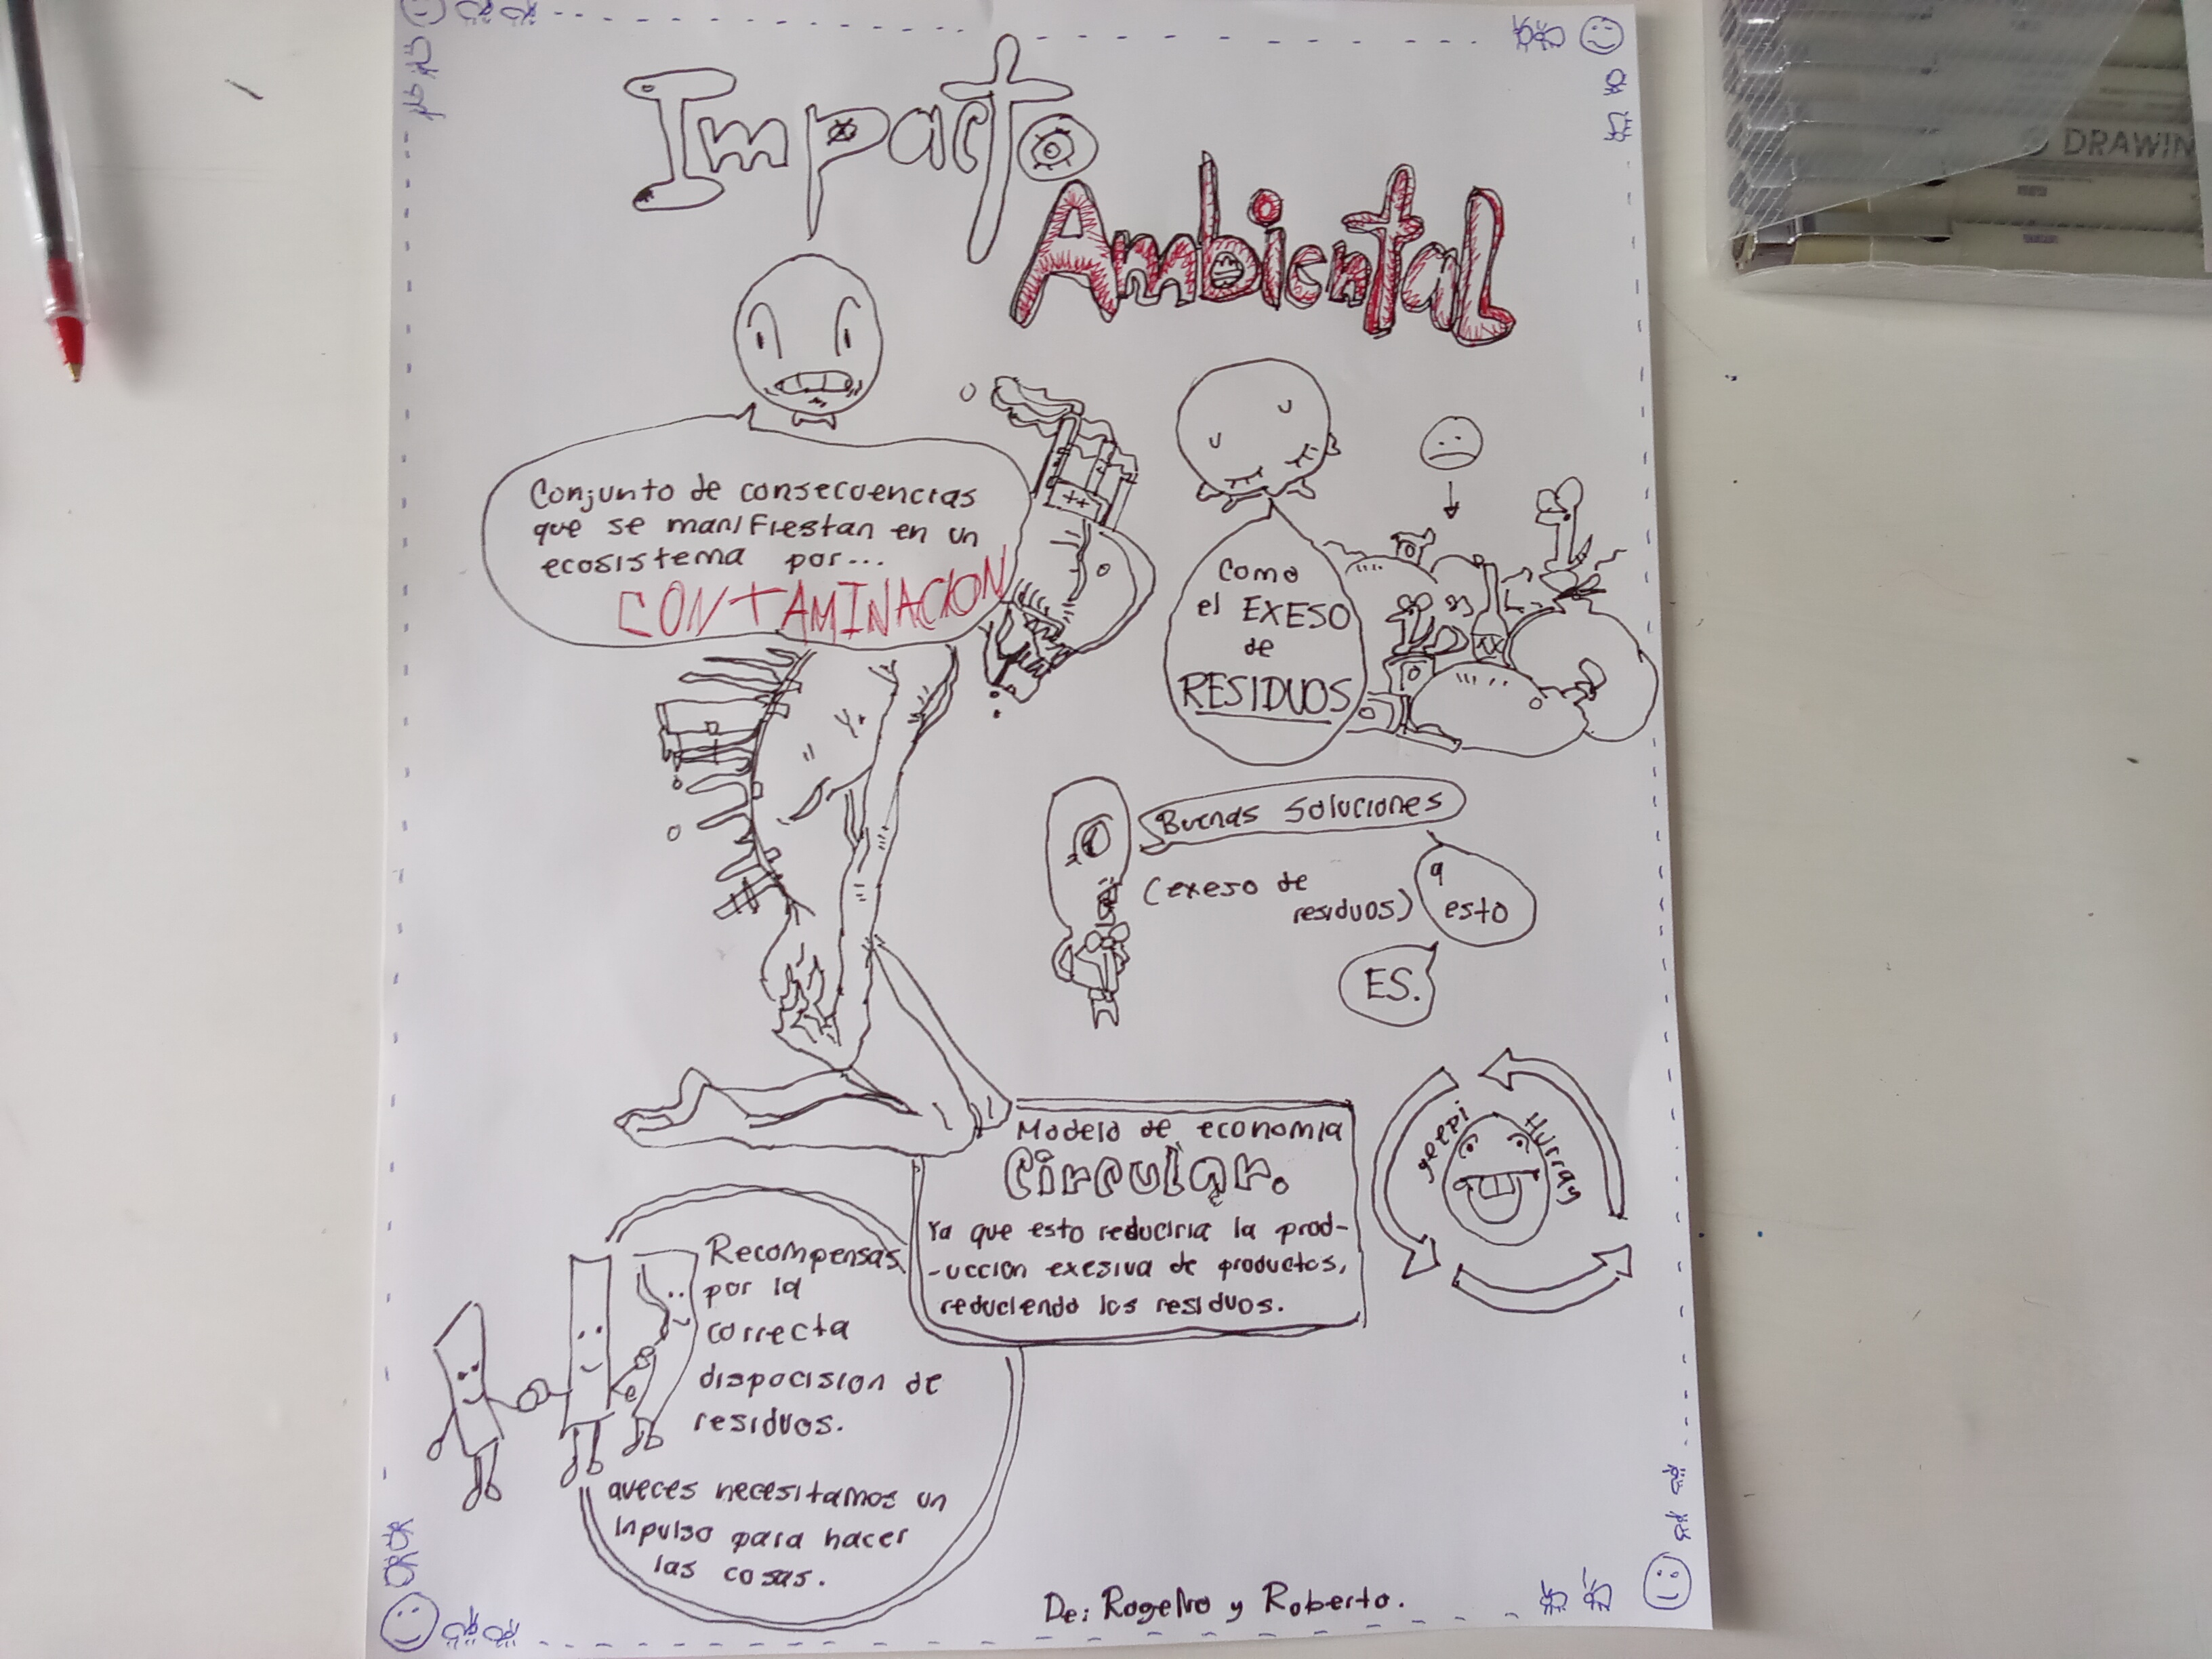 Impacto
Ambiental
Conjunto de consecuencias
que se manifiestan en un
ecosistema por...
CONTAMINACION
Como
el EXESO
de
RESIDUOS
Buenas soluciones
(exeso de
residuos)
a
esto
ES.
Modelo de economia
Circular.
Ya que esto reduciria la prod-
-uccion exesiva de productos,
reduciendo los residuos.
yeepi
Hurray
Recompensas
por la
correcta
dispocision de
residuos.
aveces necesitamos un
inpulso para hacer
las cosas.
De: Rogelio y Roberto.
DRAWIN